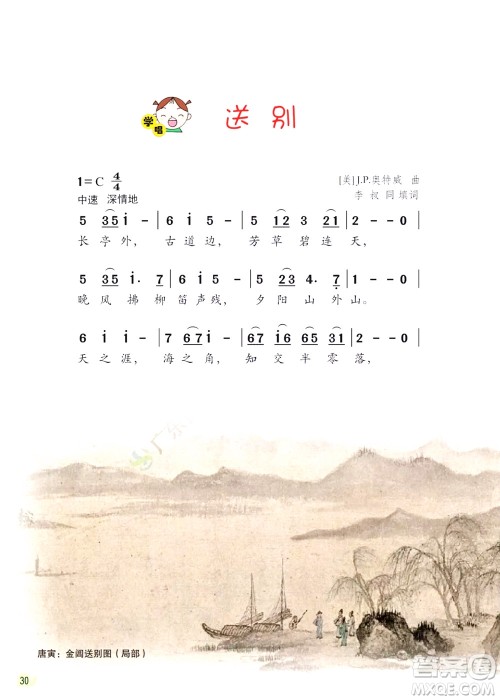 学唱
送别
1=C 4/4
[美]J.P.奥特威 曲
中速 深情地
李叔同填词
5 3 5 i - | 6 i 5 - | 5 1 2 3 2 1 | 2 - - 0 |
长亭外， 古道边， 芳草碧连天，
5 3 5 i· 7 | 6 i 5 - | 5 2 3 4· 7 | 1 - - 0 |
晚风拂柳笛声残， 夕阳山外山。
6 i i - | 7 6 7 i - | 6 7 i 6 6 5 3 1 | 2 - - 0 |
天之涯， 海之角， 知交半零落，
唐寅：金阊送别图（局部）
30
答案圈